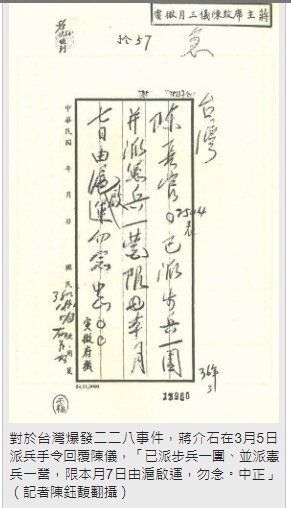 蔣主席致陳儀三月微電
57
急
台灣
陳長官。已派步兵一團
2504
并派憲兵一營限本月
七日由滬啟運勿念中正
寅微府機
中華民國 年 月 日
36年
3
對於台灣爆發二二八事件，蔣介石在3月5日
派兵手令回覆陳儀，「已派步兵一團、並派憲
兵一營，限本月7日由滬啟運，勿念。中正」
（記者陳鈺馥翻攝）